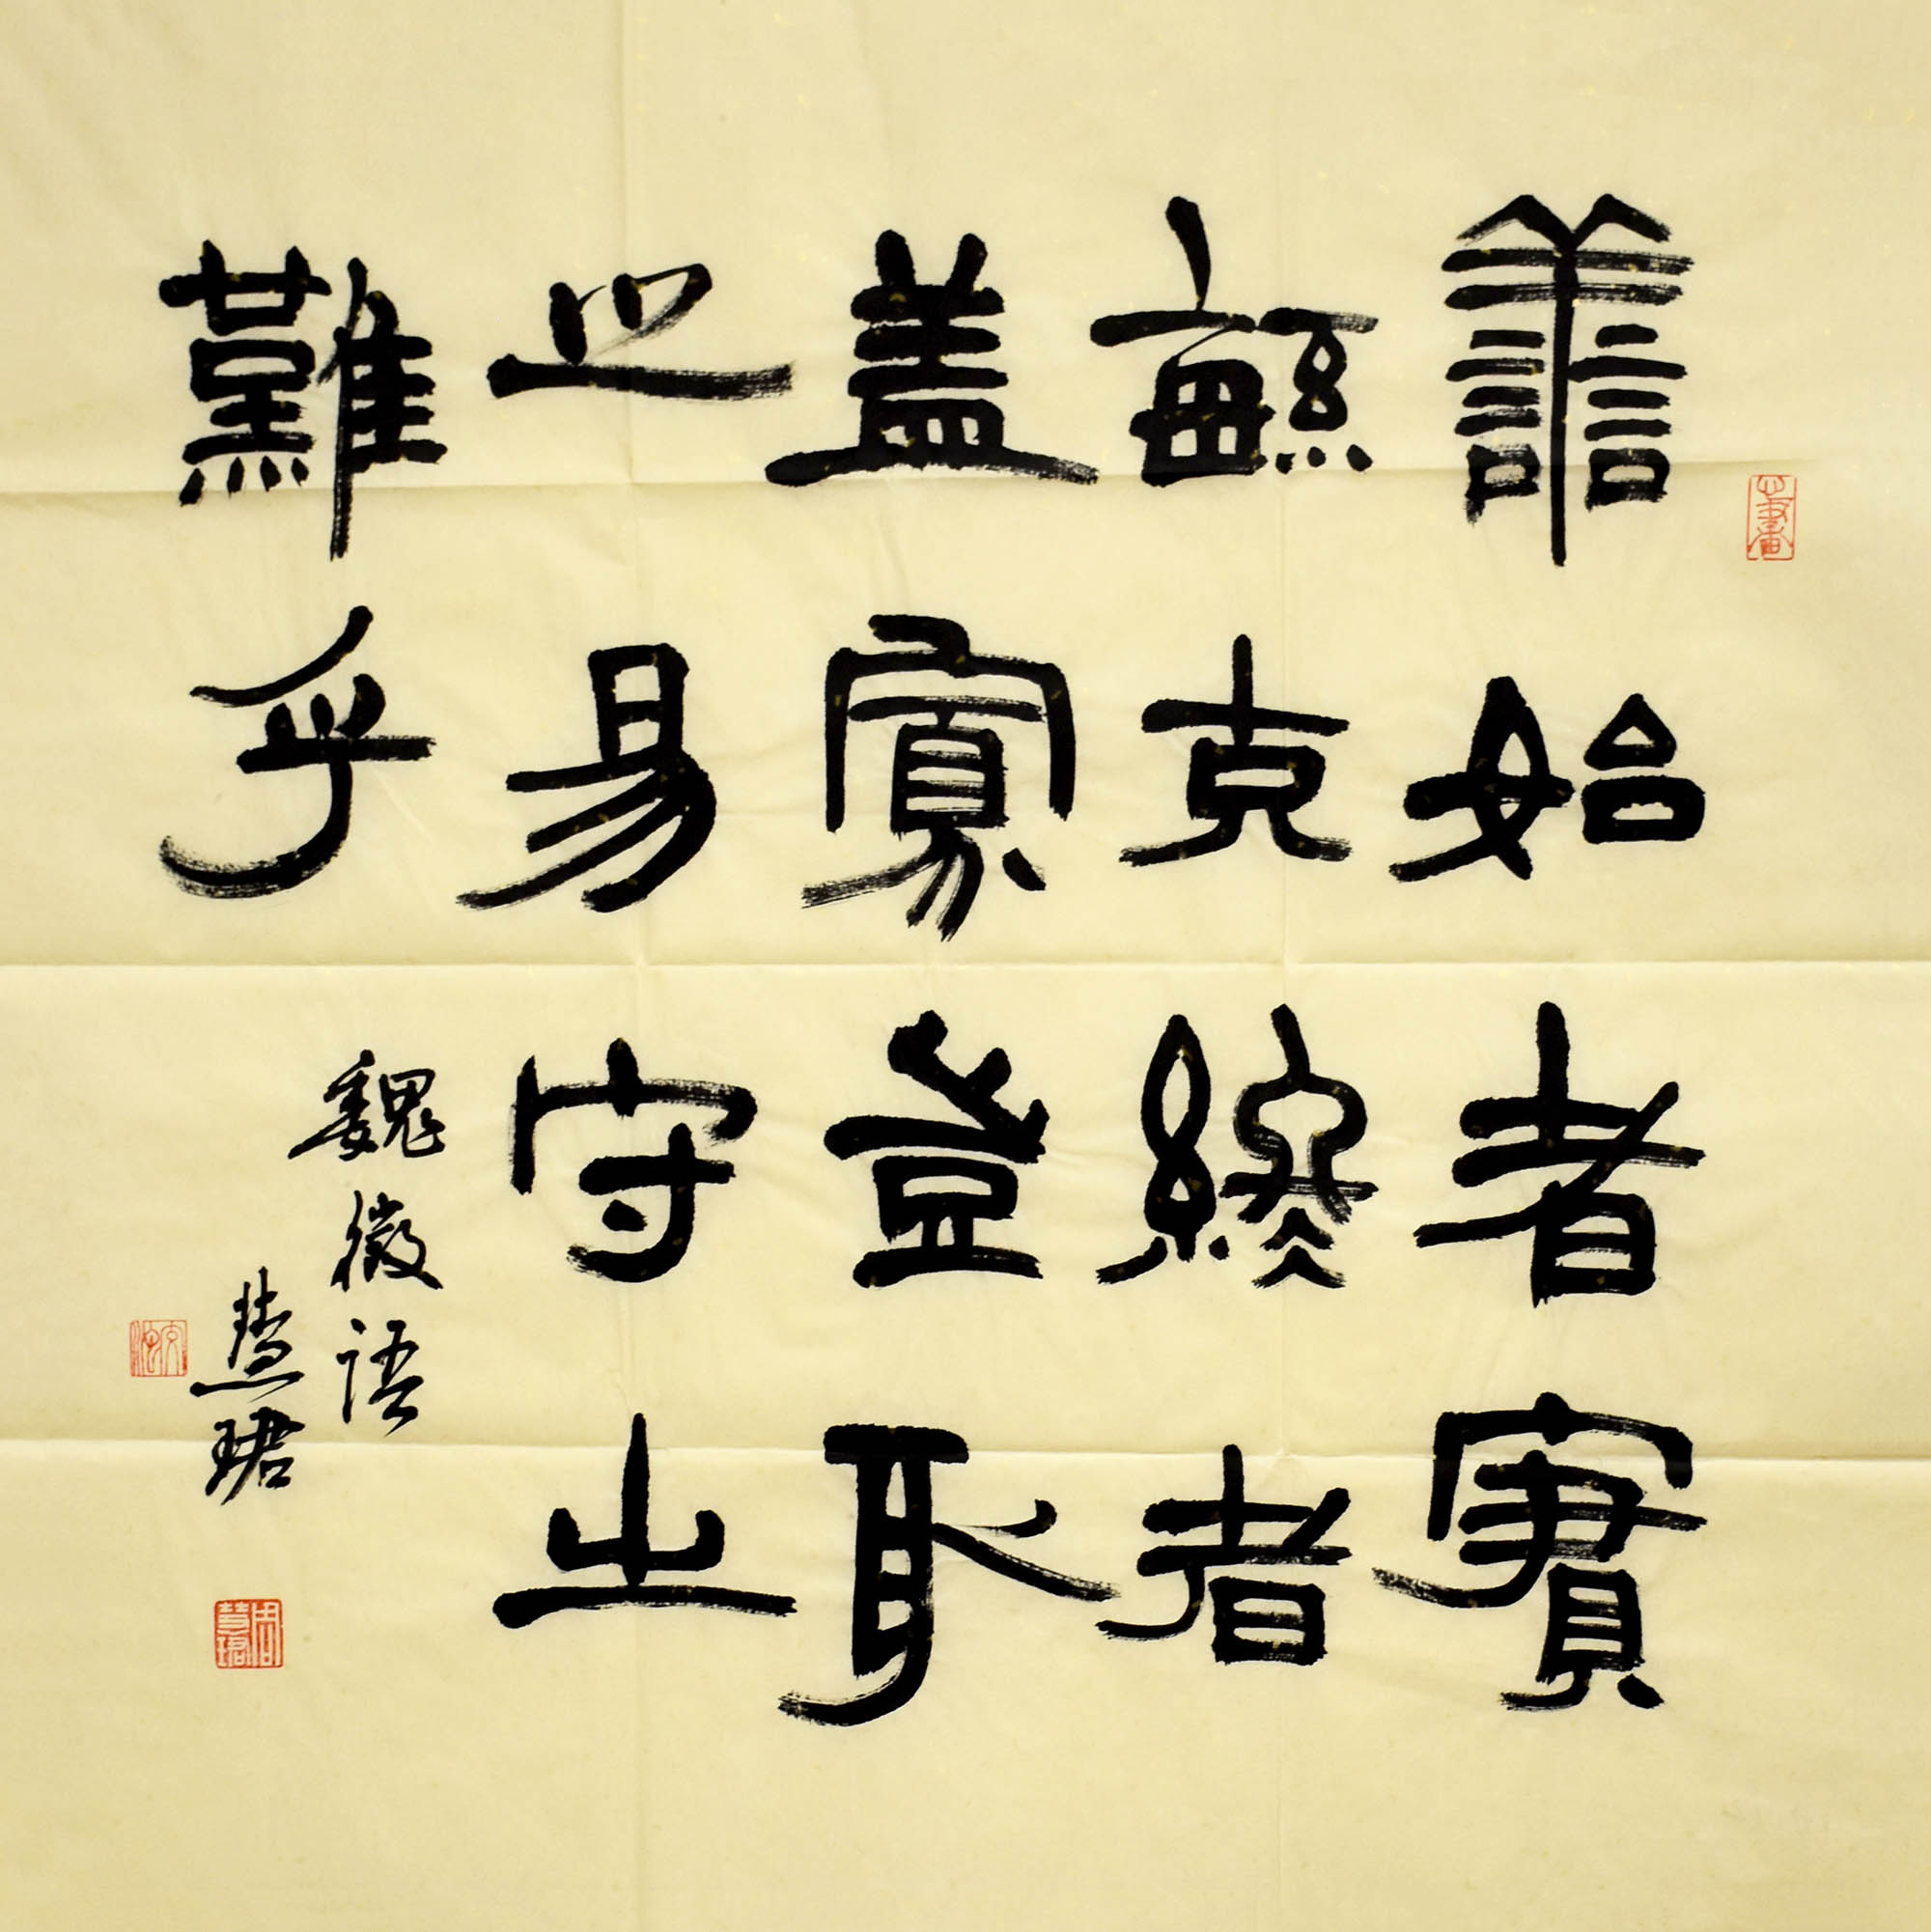 善始者實
繁克終者
蓋寡豈取
之易守之
難乎
魏徵語
慧珺
周慧珺